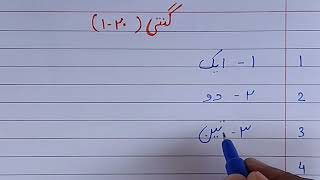 گنتی (۱-۲۰)
۱- ایک 1
۲- دو 2
۳- تین 3
4